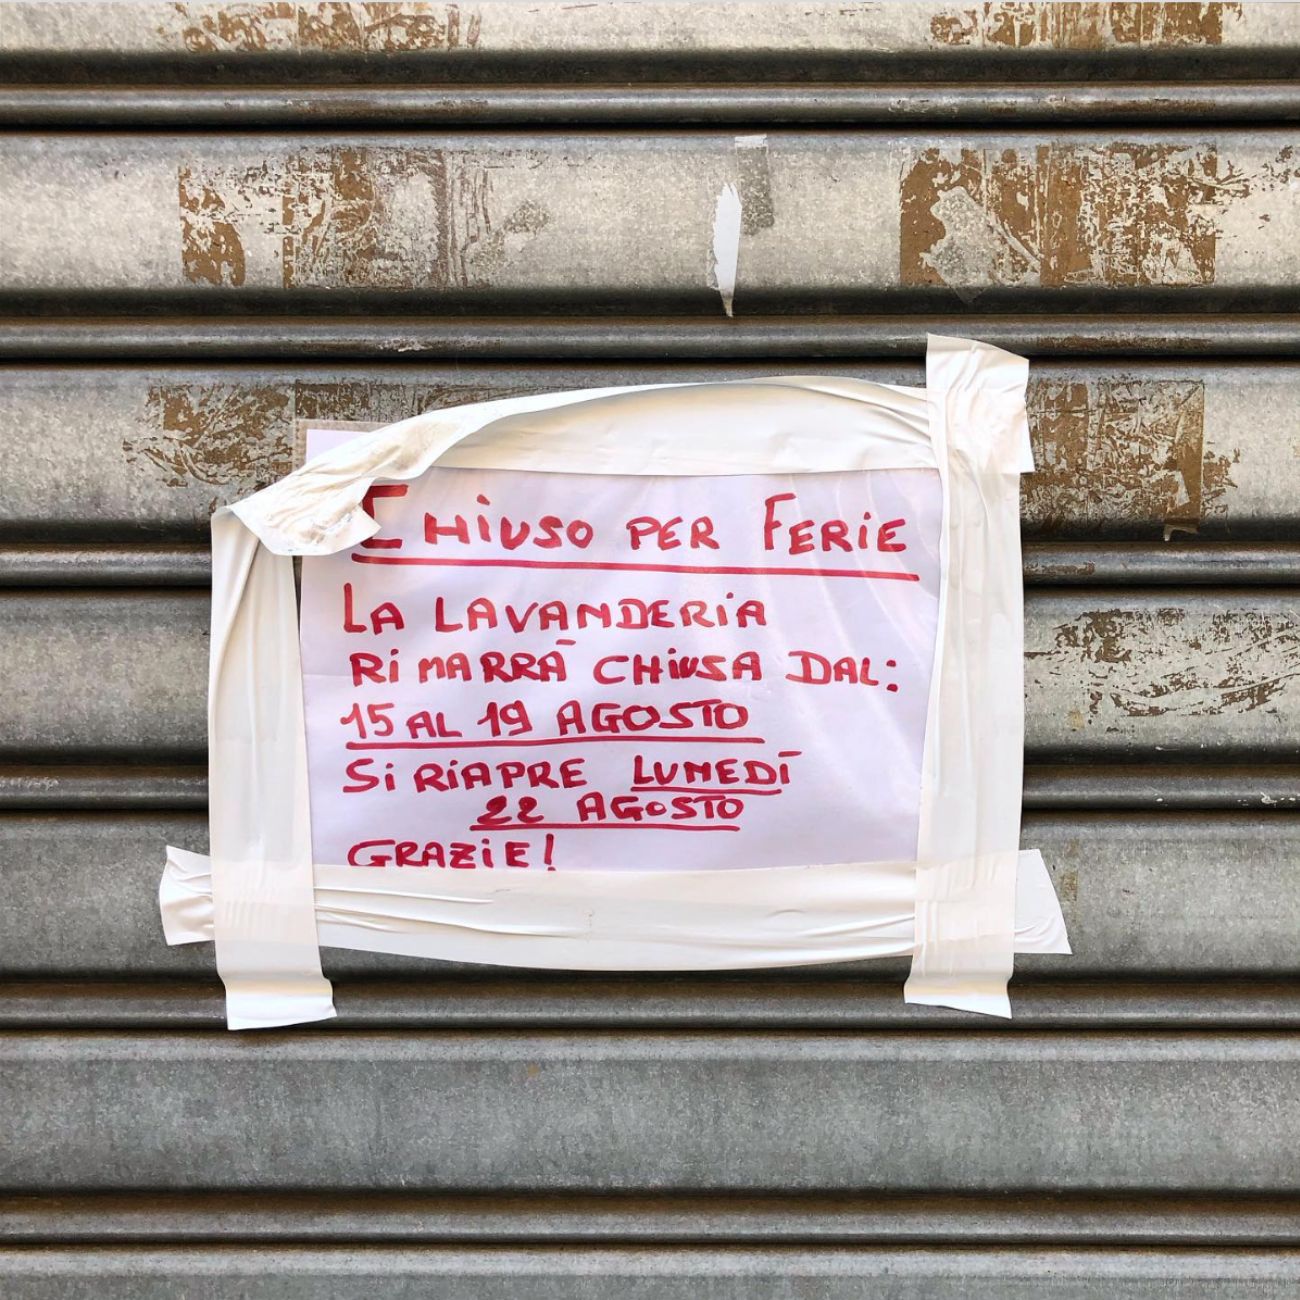 CHIUSO PER FERIE
LA LAVANDERIA
RIMARRÀ CHIUSA DAL:
15 AL 19 AGOSTO
SI RIAPRE LUNEDÌ
22 AGOSTO
GRAZIE!